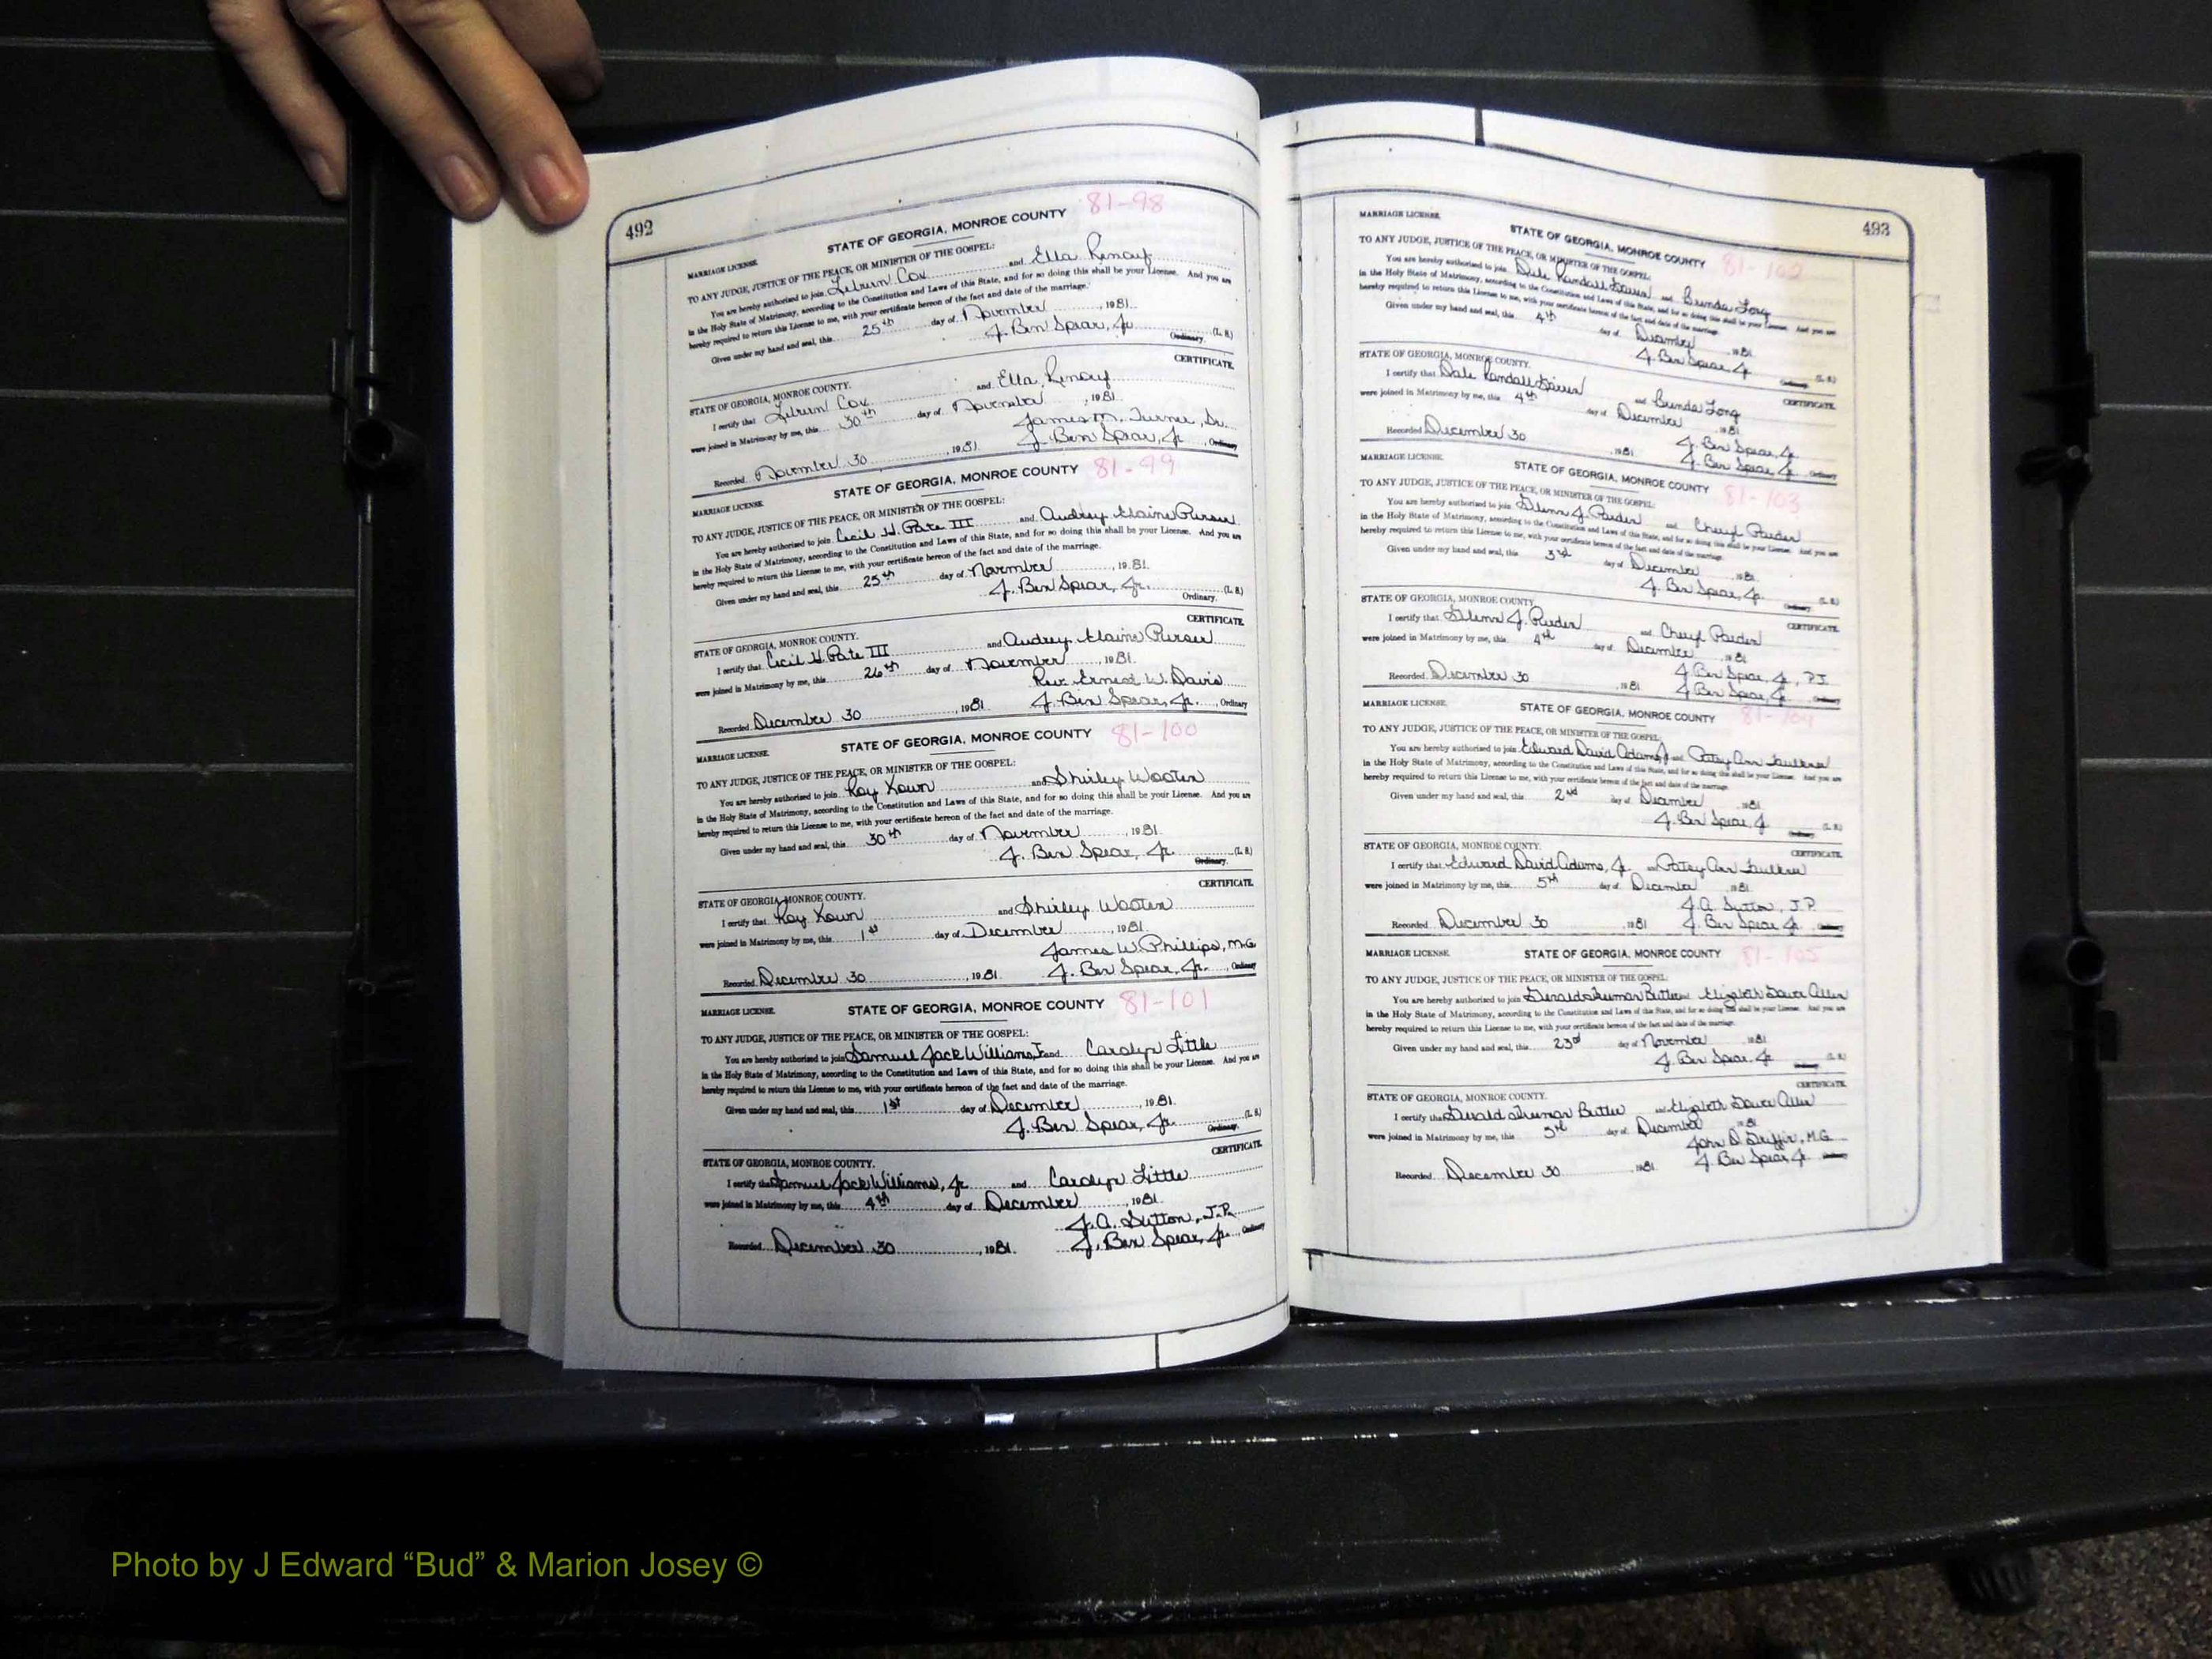 492
81-98
STATE OF GEORGIA, MONROE COUNTY
MARRIAGE LICENSE.
TO ANY JUDGE, JUSTICE OF THE PEACE, OR MINISTER OF THE GOSPEL:
You are hereby authorized to join Cox and Ella
in the Holy State of Matrimony, according to the Constitution and Laws of this State, and for so doing this shall be your License. And you are
hereby required to return this License to me, with your certificate hereon of the fact and date of the marriage.
Given under my hand and seal, this 25th day of November, 1981.
J. Ben Spear, Jr. (L. S.)
Ordinary.
CERTIFICATE.
STATE OF GEORGIA, MONROE COUNTY.
I certify that Cox and Ella
were joined in Matrimony by me, this 30th day of November, 1981.
James M. Turner, Sr.
Recorded November 30, 1981. J. Ben Spear, Jr., Ordinary
81-99
STATE OF GEORGIA, MONROE COUNTY
MARRIAGE LICENSE.
TO ANY JUDGE, JUSTICE OF THE PEACE, OR MINISTER OF THE GOSPEL:
You are hereby authorized to join Cecil H. Pate III and Audrey Elaine Purser
in the Holy State of Matrimony, according to the Constitution and Laws of this State, and for so doing this shall be your License. And you are
hereby required to return this License to me, with your certificate hereon of the fact and date of the marriage.
Given under my hand and seal, this 25th day of November, 1981.
J. Ben Spear, Jr. (L. S.)
Ordinary.
CERTIFICATE.
STATE OF GEORGIA, MONROE COUNTY.
I certify that Cecil H. Pate III and Audrey Elaine Purser
were joined in Matrimony by me, this 26th day of November, 1981.
Rev. Ernest W. Davis
Recorded December 30, 1981 J. Ben Spear, Jr., Ordinary
81-100
STATE OF GEORGIA, MONROE COUNTY
MARRIAGE LICENSE.
TO ANY JUDGE, JUSTICE OF THE PEACE, OR MINISTER OF THE GOSPEL:
You are hereby authorized to join Roy Kown and Shirley Wooten
in the Holy State of Matrimony, according to the Constitution and Laws of this State, and for so doing this shall be your License. And you are
hereby required to return this License to me, with your certificate hereon of the fact and date of the marriage.
Given under my hand and seal, this 30th day of November, 1981.
J. Ben Spear, Jr. (L. S.)
Ordinary.
CERTIFICATE.
STATE OF GEORGIA, MONROE COUNTY.
I certify that Roy Kown and Shirley Wooten
were joined in Matrimony by me, this 1st day of December, 1981.
James W. Phillips, M.G.
Recorded December 30, 1981. J. Ben Spear, Jr., Ordinary
81-101
STATE OF GEORGIA, MONROE COUNTY
MARRIAGE LICENSE.
TO ANY JUDGE, JUSTICE OF THE PEACE, OR MINISTER OF THE GOSPEL:
You are hereby authorized to join Samuel Jack Williams, Jr. and Carolyn Little
in the Holy State of Matrimony, according to the Constitution and Laws of this State, and for so doing this shall be your License. And you are
hereby required to return this License to me, with your certificate hereon of the fact and date of the marriage.
Given under my hand and seal, this 1st day of December, 1981.
J. Ben Spear, Jr. (L. S.)
Ordinary.
CERTIFICATE.
STATE OF GEORGIA, MONROE COUNTY.
I certify that Samuel Jack Williams, Jr. and Carolyn Little
were joined in Matrimony by me, this 4th day of December, 1981.
J.A. Sutton, J.P.
Recorded December 30, 1981. J. Ben Spear, Jr., Ordinary
493
MARRIAGE LICENSE.
STATE OF GEORGIA, MONROE COUNTY 81-102
TO ANY JUDGE, JUSTICE OF THE PEACE, OR MINISTER OF THE GOSPEL:
You are hereby authorized to join Dale Randall and Brenda Long
in the Holy State of Matrimony, according to the Constitution and Laws of this State, and for so doing this shall be your License. And you are
hereby required to return this License to me, with your certificate hereon of the fact and date of the marriage.
Given under my hand and seal, this 4th day of December, 1981
J. Ben Spear, Jr. (L. S.)
Ordinary.
STATE OF GEORGIA, MONROE COUNTY.
CERTIFICATE.
I certify that Dale Randall and Brenda Long
were joined in Matrimony by me, this 4th day of December, 1981.
J. Ben Spear, Jr.
Recorded December 30, 1981. J. Ben Spear, Jr. Ordinary
MARRIAGE LICENSE.
STATE OF GEORGIA, MONROE COUNTY 81-103
TO ANY JUDGE, JUSTICE OF THE PEACE, OR MINISTER OF THE GOSPEL:
You are hereby authorized to join Glenn J. and Cheryl
in the Holy State of Matrimony, according to the Constitution and Laws of this State, and for so doing this shall be your License. And you are
hereby required to return this License to me, with your certificate hereon of the fact and date of the marriage.
Given under my hand and seal, this 3rd day of December, 1981.
J. Ben Spear, Jr. (L. S.)
Ordinary.
STATE OF GEORGIA, MONROE COUNTY.
CERTIFICATE.
I certify that Glenn J. and Cheryl
were joined in Matrimony by me, this 4th day of December, 1981
J. Ben Spear, Jr., P.J.
Recorded December 30, 1981 J. Ben Spear, Jr. Ordinary
MARRIAGE LICENSE.
STATE OF GEORGIA, MONROE COUNTY 81-104
TO ANY JUDGE, JUSTICE OF THE PEACE, OR MINISTER OF THE GOSPEL:
You are hereby authorized to join Edward David Adams, Jr. and Patsy Ann Faulkner
in the Holy State of Matrimony, according to the Constitution and Laws of this State, and for so doing this shall be your License. And you are
hereby required to return this License to me, with your certificate hereon of the fact and date of the marriage.
Given under my hand and seal, this 2nd day of December, 1981.
J. Ben Spear, Jr. (L. S.)
Ordinary.
STATE OF GEORGIA, MONROE COUNTY.
CERTIFICATE.
I certify that Edward David Adams, Jr. and Patsy Ann Faulkner
were joined in Matrimony by me, this 5th day of December, 1981.
J.A. Sutton, J.P.
Recorded December 30 1981 J. Ben Spear, Jr. Ordinary
MARRIAGE LICENSE. STATE OF GEORGIA, MONROE COUNTY 81-105
TO ANY JUDGE, JUSTICE OF THE PEACE, OR MINISTER OF THE GOSPEL:
You are hereby authorized to join Gerald Truman Butler and Elizabeth Allen
in the Holy State of Matrimony, according to the Constitution and Laws of this State, and for so doing this shall be your License. And you are
hereby required to return this License to me, with your certificate hereon of the fact and date of the marriage.
Given under my hand and seal, this 23rd day of November 1981
J. Ben Spear, Jr. (L. S.)
CERTIFICATE.
STATE OF GEORGIA, MONROE COUNTY.
I certify that Gerald Truman Butler and Elizabeth Allen
were joined in Matrimony by me, this day of December 1981.
John D. Griffin, M.G.
Recorded December 30 1981. J. Ben Spear, Jr. Ordinary
Photo by J Edward “Bud” & Marion Josey ©